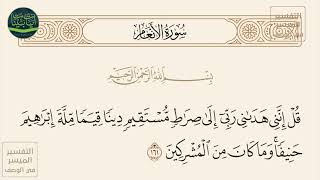 سُورَةُ الأَنْعَامِ
بِسْمِ اللَّهِ الرَّحْمَٰنِ الرَّحِيمِ
قُلْ إِنَّنِي هَدَىٰنِي رَبِّيٓ إِلَىٰ صِرَٰطٖ مُّسْتَقِيمٖ دِينٗا قِيَمٗا مِّلَّةَ إِبْرَٰهِيمَ
حَنِيفٗاۚ وَمَا كَانَ مِنَ ٱلْمُشْرِكِينَ ١٦١
التفسير
الميسر
التفسير
الميسر
في الوصف